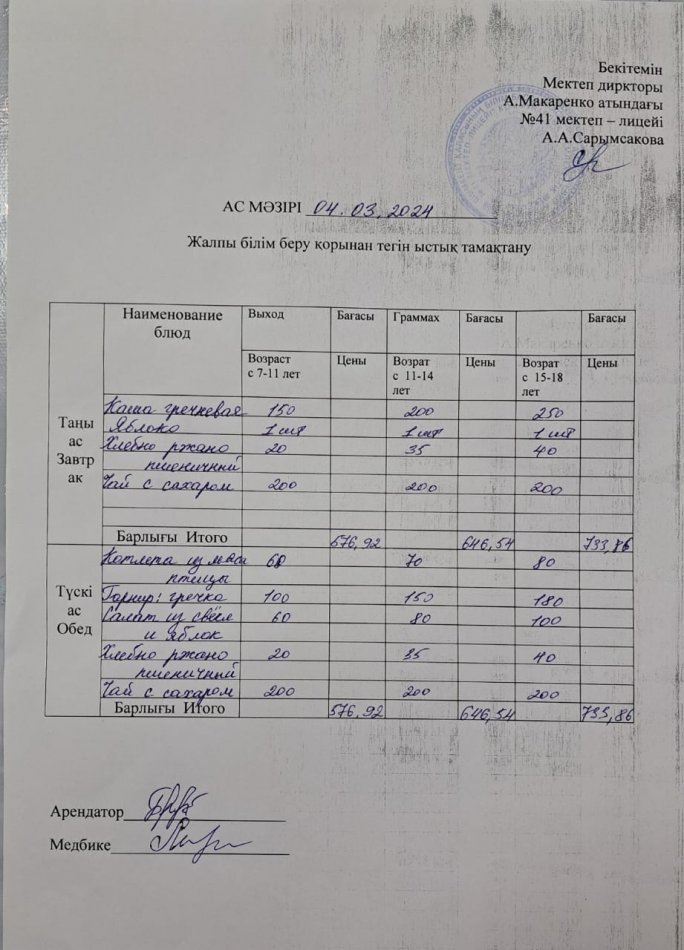 Бекітемін
Мектеп диркторы
А.Макаренко атындағы
№41 мектеп – лицейі
А.А.Сарымсакова
АС МӘЗІРІ 04.03.2024
Жалпы білім беру қорынан тегін ыстық тамақтану
Наименование блюд Выход Бағасы Граммах Бағасы Бағасы
Возраст с 7-11 лет Цены Возрат с 11-14 лет Цены Возрат с 15-18 лет Цены
Таңы ас Завтр ак
Каша гречневая 150 200 250
Яблоко 1 шт 1 шт 1 шт
Хлебно ржано 20 35 40
пшеничный
Чай с сахаром 200 200 200
Барлығы Итого 576,92 646,54 733,86
Түскі ас Обед
Котлета из мяса 60 70 80
птицы
Гарнир: гречка 100 150 180
Салат из свёкл 60 80 100
и яблок
Хлебно ржано 20 35 40
пшеничный
Чай с сахаром 200 200 200
Барлығы Итого 576,92 646,54 733,86
Арендатор
Медбике